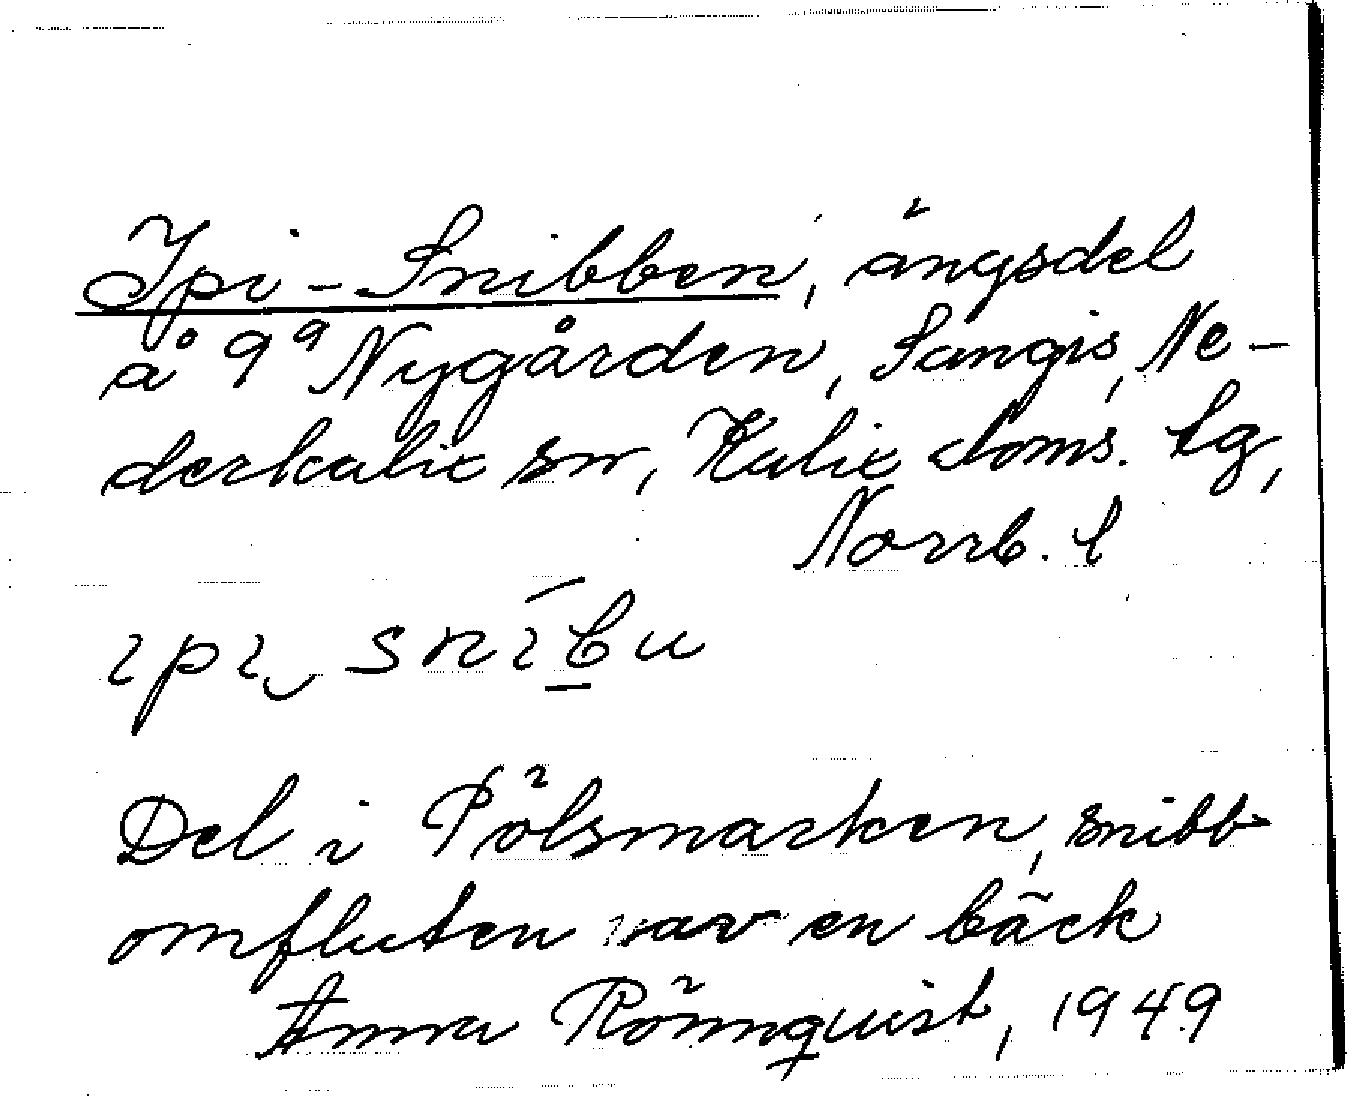 Ipi-Snibben, ängsdel
å 9⁹ Nygården, Sangis, Ne-
derkalix sn, Kalix doms. lg,
Norrb. l
ipi snību
Del i Pölsmarken, snibb
omfluten av en bäck
Anna Rönnquist, 1949